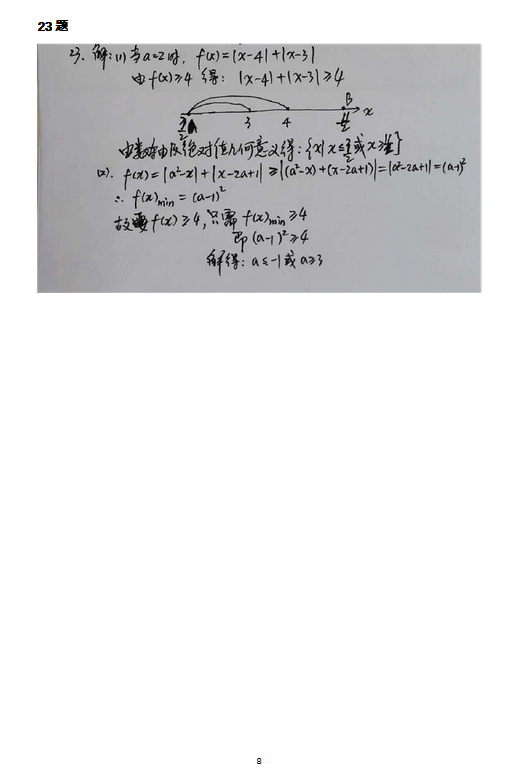 23题
23. 解:(1) 当a=2时, f(x)=|x-4|+|x-3|
由f(x)≥4 得: |x-4|+|x-3|≥4
3/2 A 3 4 B 11/2 x
由数轴由及绝对值几何意义得:{x|x≤3/2或x≥11/2}
(2). f(x)=|a²-x|+|x-2a+1|≥|(a²-x)+(x-2a+1)|=|a²-2a+1|=(a-1)²
∴ f(x)min=(a-1)²
故要f(x)≥4,只需f(x)min≥4
即(a-1)²≥4
解得: a≤-1或a≥3
8